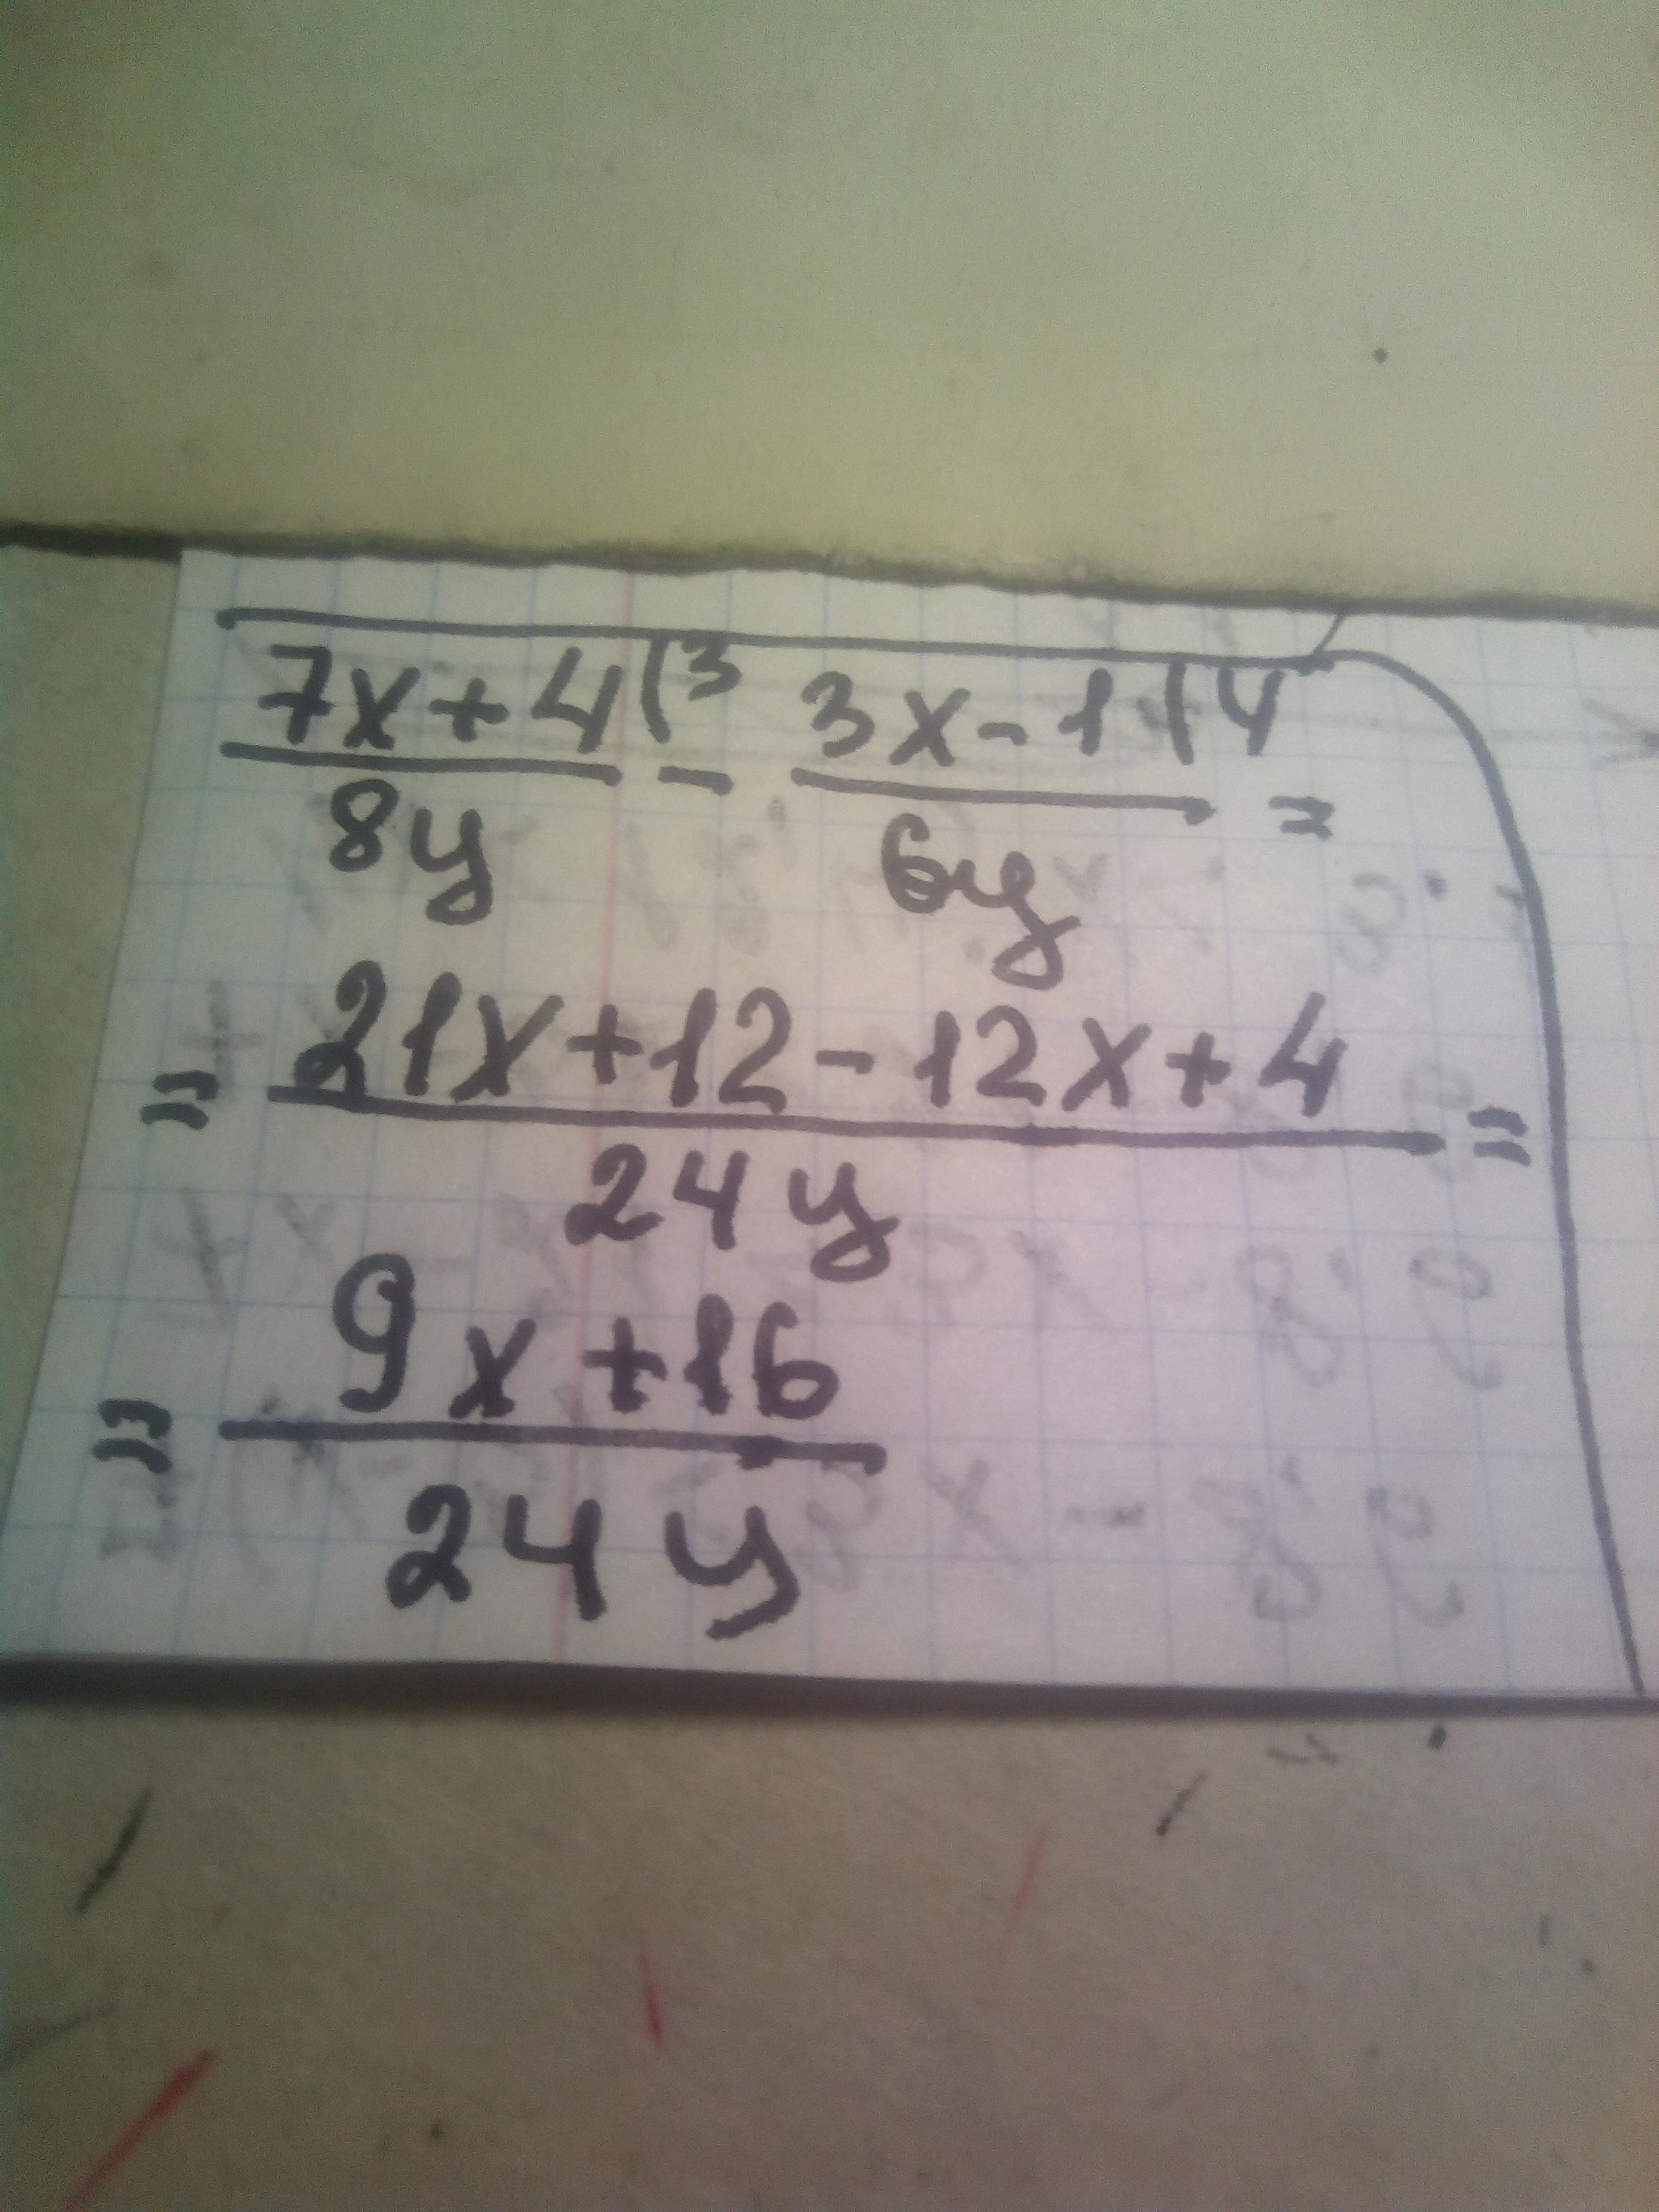 7x+4(3 / 8y - 3x-1(4 / 6y =
= 21x+12-12x+4 / 24y =
= 9x+16 / 24y